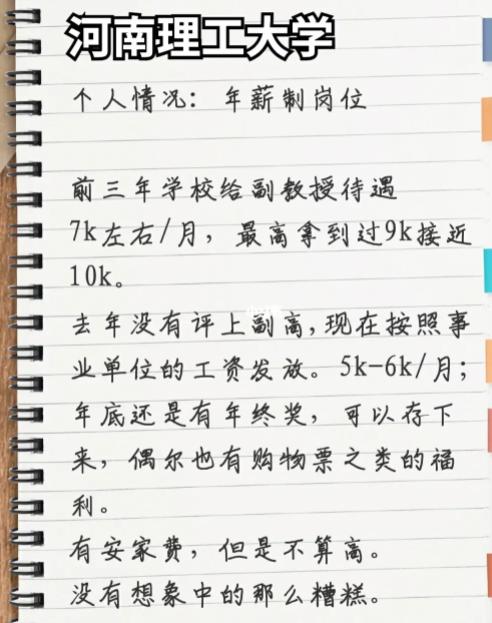 河南理工大学
个人情况：年薪制岗位
前三年学校给副教授待遇
7k左右/月，最高拿到过9k接近
10k。
去年没有评上副高，现在按照事
业单位的工资发放。5k-6k/月；
年底还是有年终奖，可以存下
来，偶尔也有购物票之类的福
利。
有安家费，但是不算高。
没有想象中的那么糟糕。